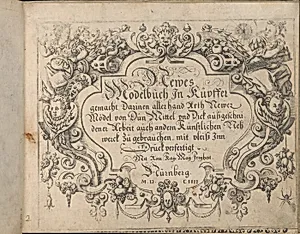 Newes
Modelbüch In Küpffer
gemacht Darinen allerhand Arth Newer
Model von Dün Mittel vnd Dick außgeschni
dener Arbeit auch andern Künstlichen Neh
werck Zu gebrauchen, mit vleiß Inn
Druck verfertigt
Mit Röm Kay May freyhat
Nürnberg